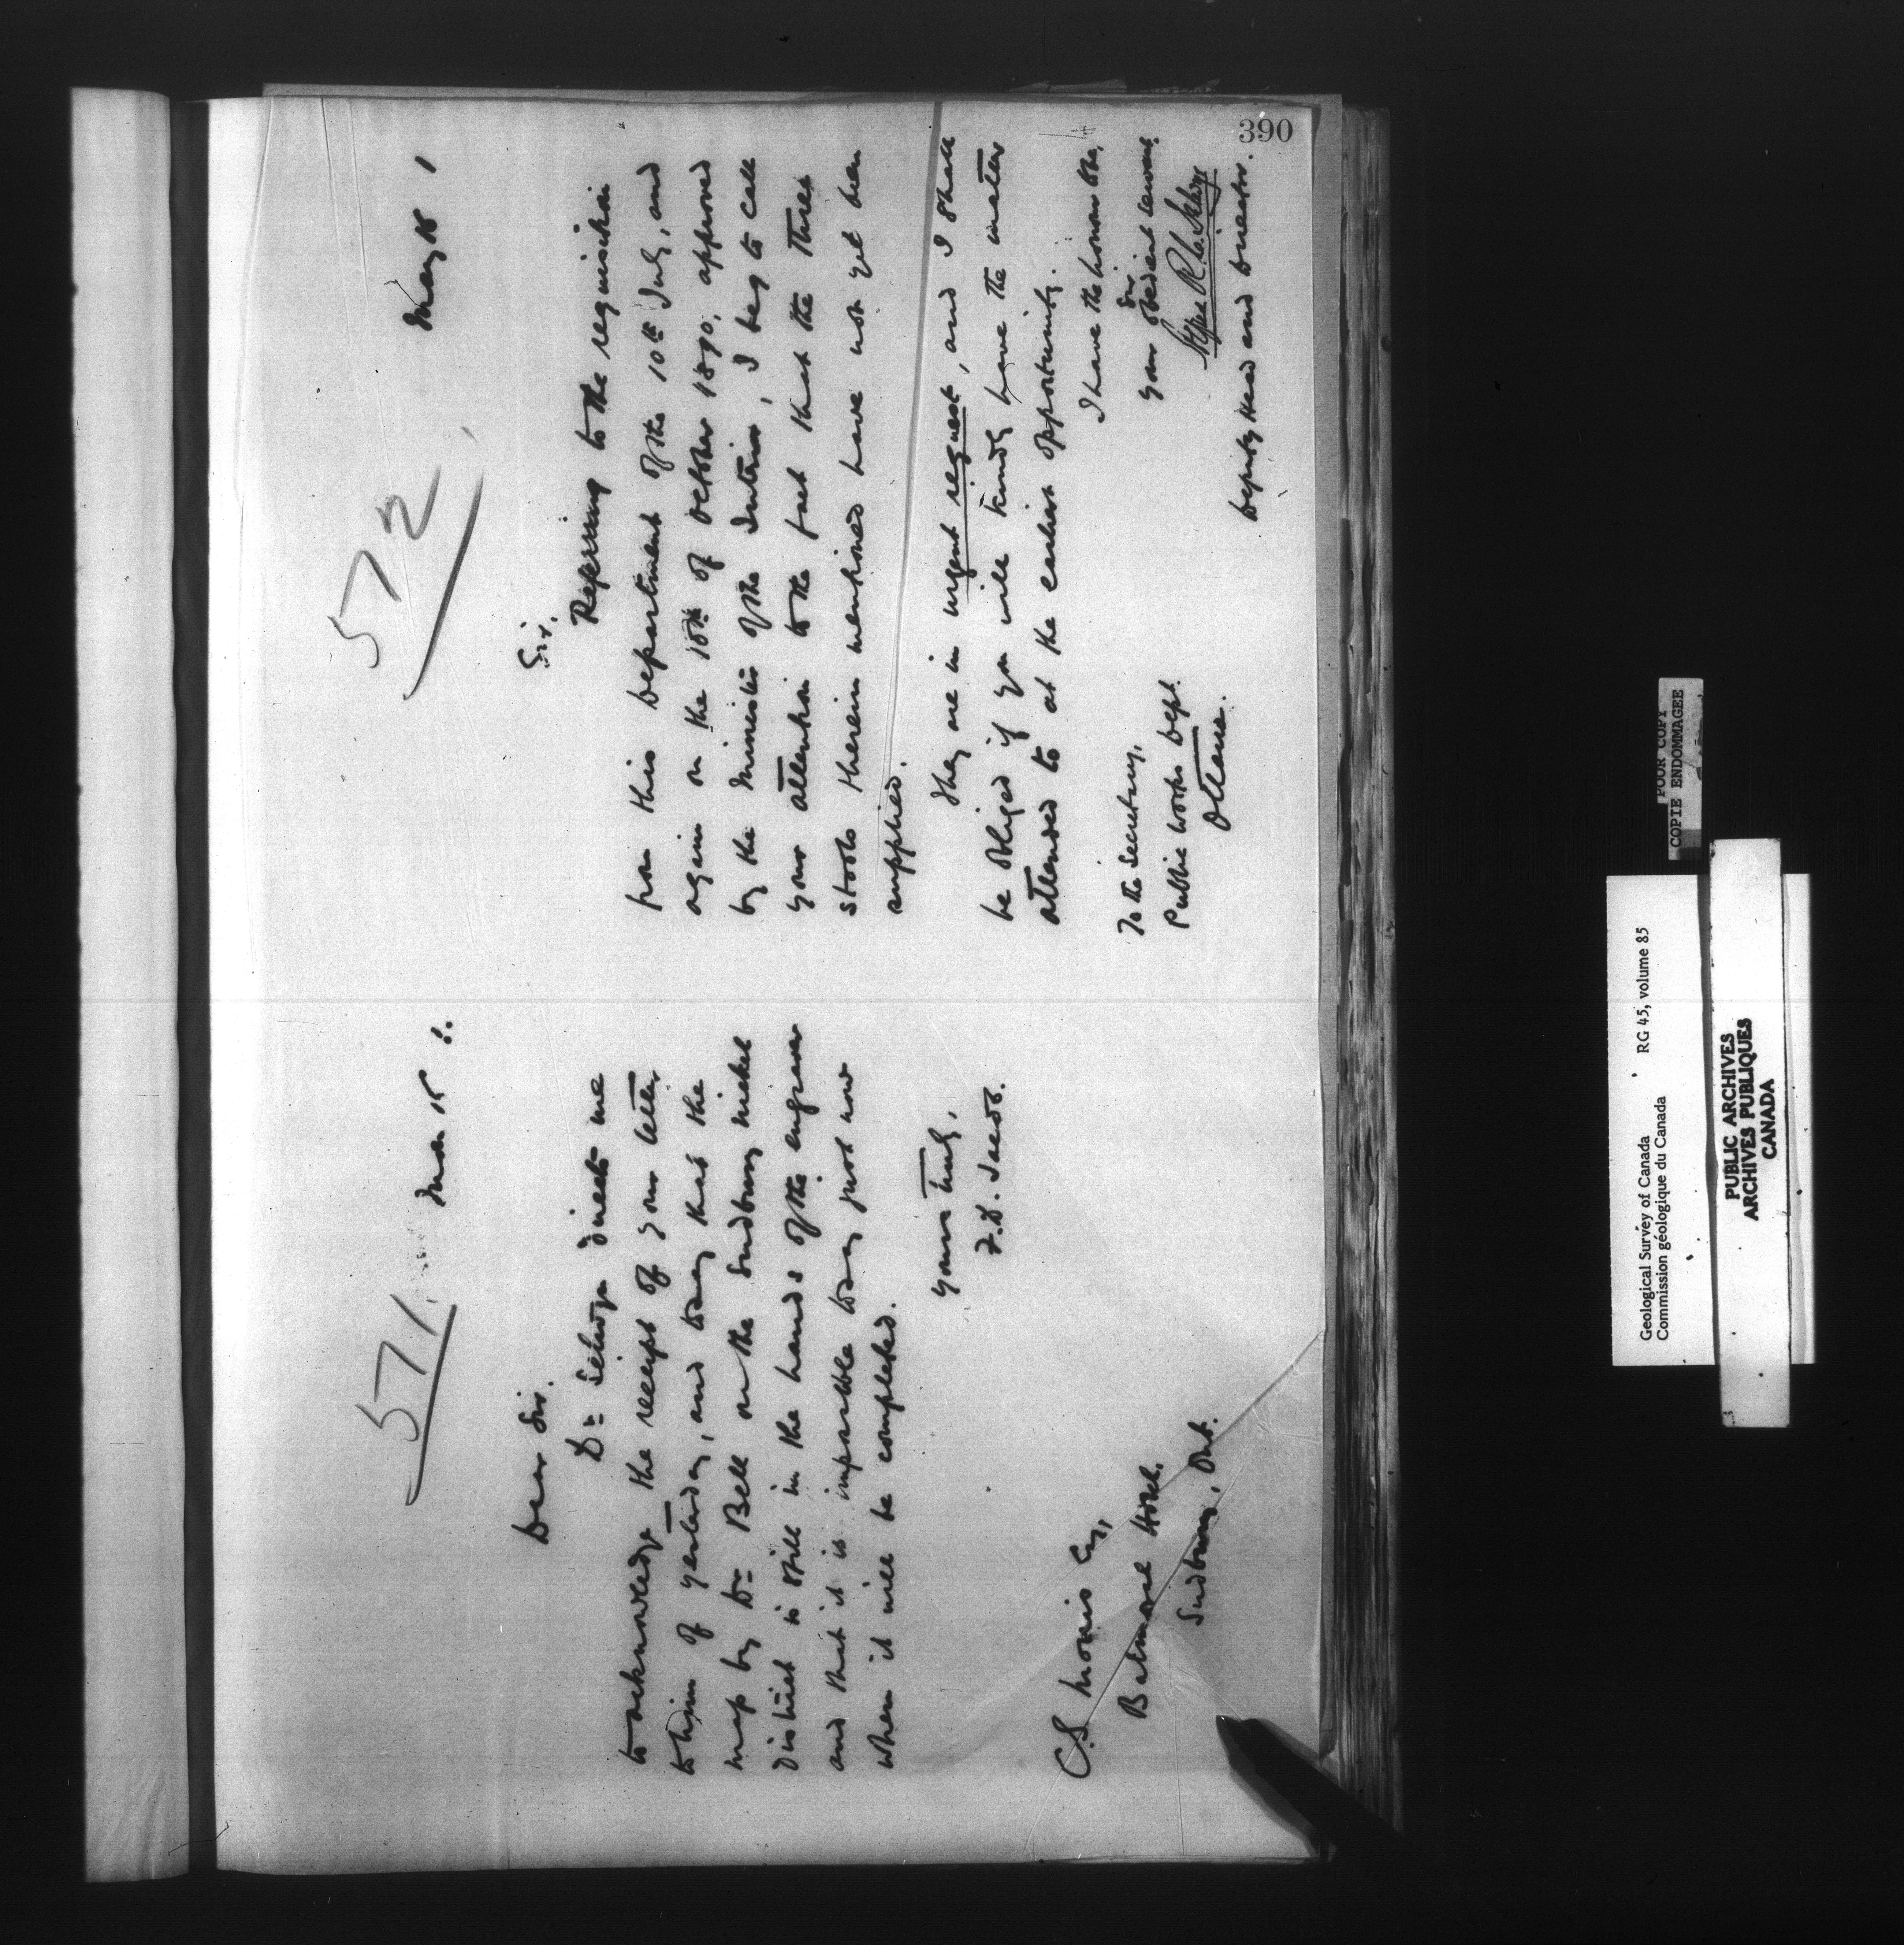 390
571.
May 15 1.
Dear Sir.
Dr Selwyn directs me
to acknowledge the receipt of your letter
to him of yesterday, and to say that the
map by Dr Bell on the Sudbury Nickel
District is still in the hands of the engraver
and that it is impossible to say just now
when it will be completed.
Yours truly,
C.S. Morris Esq,
Balmoral Hotel.
Sudbury, Ont.
572
May 15 1
Sir.
Referring to the requisition
from this Department of the 10th July, and
again on the 10th of October 1890, approved
by the Minister of the Interior, I beg to call
your attention to the fact that the three
stools therein mentioned have not yet been
supplied.
They are in urgent request, and I shall
be obliged if you will kindly have the matter
attended to at the earliest opportunity.
I have the honour to be,
Sir
Your obedient servant.
Alfred R. C. Selwyn
Deputy Head and Director.
To the Secretary,
Public Works Dept.
Ottawa.
POOR COPY
COPIE ENDOMMAGEE
Geological Survey of Canada RG 45, volume 85
Commission géologique du Canada
PUBLIC ARCHIVES
ARCHIVES PUBLIQUES
CANADA